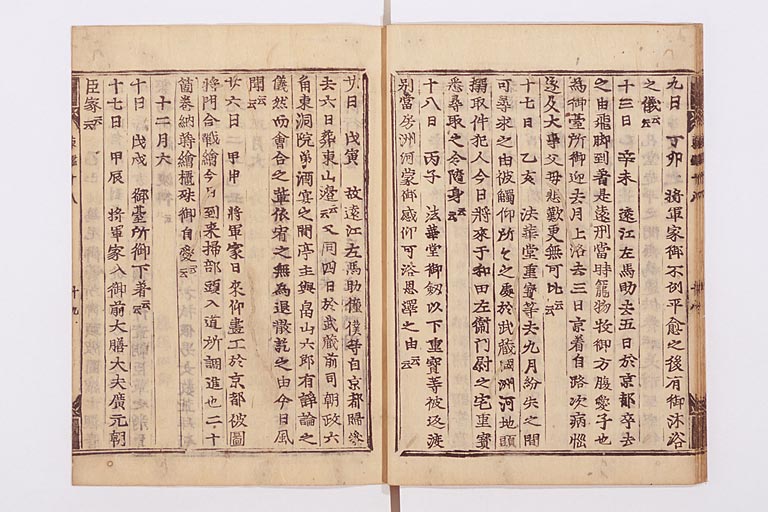 九日　丁卯　将軍家御不例平愈之後有御沐浴
之儀云云
十三日　辛未　遠江左馬助去五日於京都卒去
之由飛脚到着是遠州當時寵物牧御方腹愛子也
為御臺所御迎去月上洛去三日京着自路次病惱
遂及大事父母悲歎更無可比云云
十七日　乙亥　法華堂重寶等去九月紛失之間
可尋求之由被觸仰所々之處於武蔵國洲河地頭
搦取件犯人今日將來于和田左衛門尉之宅重寶
悉尋取之令随身云云
十八日　丙子　法華堂御釼以下重寶等被返渡
別當房洲河蒙御感仰可浴恩澤之由云云
廿日　戊寅　故遠江左馬助僮僕等自京都歸参
去六日葬東山邊云云又同四日於武蔵前司朝政六
角東洞院第酒宴之間亭主与畠山六郎有諍論之
儀然而會合之輩依宥之無為退散訖之由今日風
聞云云
廿六日　甲申　将軍家日來仰畫工於京都被圖
將門合戰繪今日到来掃部頭入道所調進也二十
箇巻納蒔繪櫃殊御自愛云云
十二月六
十日　戊戌　御臺所御下着云云
十七日　甲辰　将軍家入御前大膳大夫廣元朝
臣家云云
吾妻鏡十八
十九